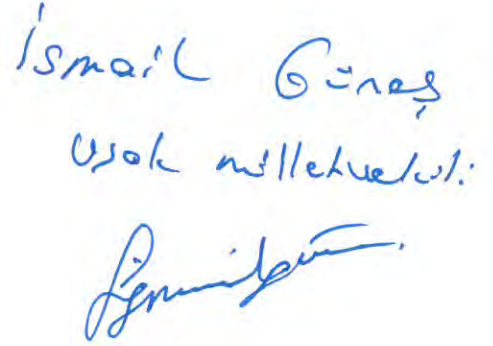 İsmail Güneş
Uşak milletvekili